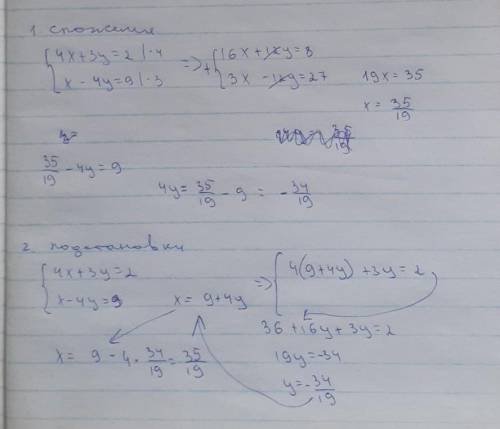 1 сложение
{4x+3y=2 |·4
{x-4y=9 |·3
=> + {16x+12y=8
{3x-12y=27
19x=35
x=35/19
y=
35/19-4y=9
4y=35/19-9=-34/19
2 подстановки
{4x+3y=2
{x-4y=9
x=9+4y
=> {4(9+4y)+3y=2
36+16y+3y=2
19y=-34
y=-34/19
x=9-4·34/19=35/19